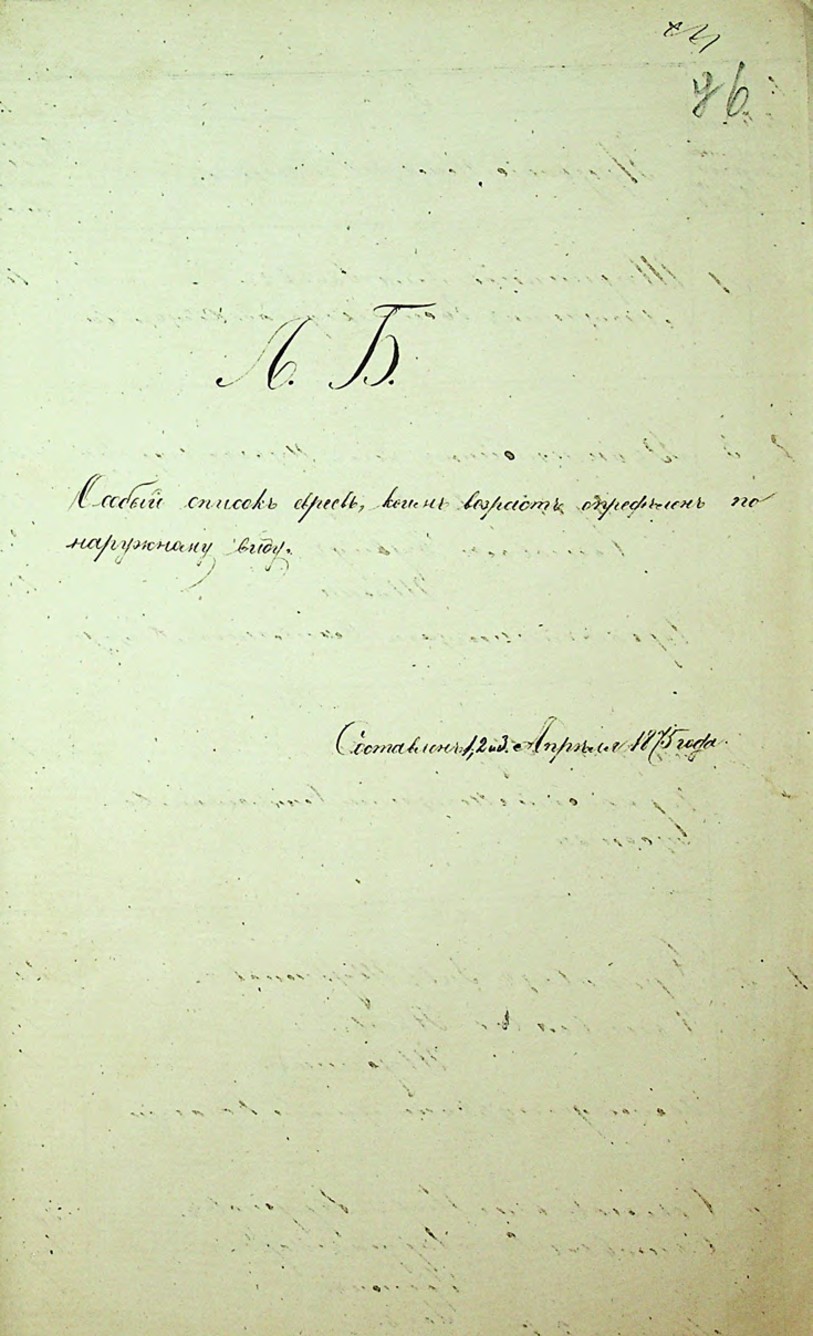 76
Л. Б.
Особый списокъ евреевъ, коихъ возрастъ опредѣленъ по
наружному виду.
Составленъ 1, 2 и 3. Апрѣля 1875 года.